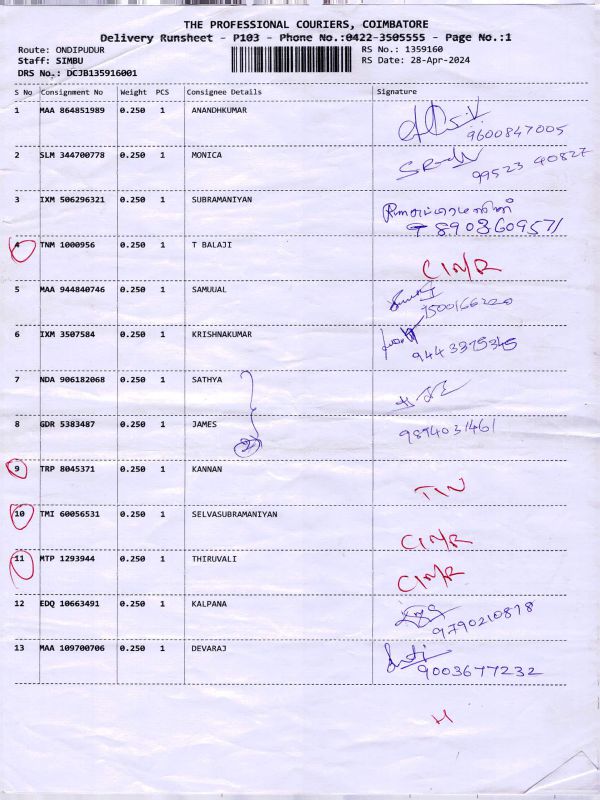 THE PROFESSIONAL COURIERS, COIMBATORE
Delivery Runsheet - P103 - Phone No.:0422-3505555 - Page No.:1
Route: ONDIPUDUR RS No.: 1359160
Staff: SIMBU RS Date: 28-Apr-2024
DRS No.: DCJB135916001
S No Consignment No Weight PCS Consignee Details Signature
1 MAA 864851989 0.250 1 ANANDHKUMAR
9600847005
2 SLM 344700778 0.250 1 MONICA
99523 40827
3 IXM 506296321 0.250 1 SUBRAMANIYAN
8903609571
4 TNM 1000956 0.250 1 T BALAJI CIN/R
5 MAA 944840746 0.250 1 SAMUUAL
7500166220
6 IXM 3507584 0.250 1 KRISHNAKUMAR
9443375345
7 NDA 906182068 0.250 1 SATHYA
8 GDR 5383487 0.250 1 JAMES 9894031461
2
9 TRP 8045371 0.250 1 KANNAN
TIN
10 TMI 60056531 0.250 1 SELVASUBRAMANIYAN
CIN/R
11 MTP 1293944 0.250 1 THIRUVALI
CIN/R
12 EDQ 10663491 0.250 1 KALPANA
9790210878
13 MAA 109700706 0.250 1 DEVARAJ
9003677232